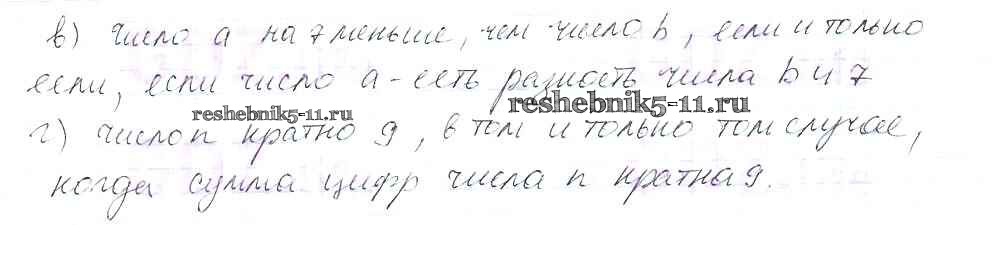 в) число a на 7 меньше, чем число b, если и только
если, если число a - есть разность числа b и 7
reshebnik5-11.ru reshebnik5-11.ru
г) число n кратно 9, в том и только том случае,
когда сумма цифр числа n кратна 9.